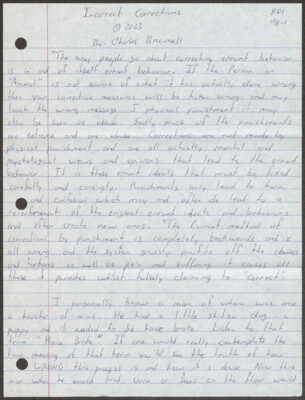 Incorrect Corrections
© 2023
By: Charles Brownell
The way people go about correcting errant behavior
is in and of itself errant behavior. If the Person or
"Animal" is not aware of what it has actually done wrong
then your corrective measures will be taken wrong and may
teach the wrong message. Physical punishment can
also be seen as abuse. Sadly much of the punishments
are extreme and are abuse. Corrections are not made by
physical punishment and are all actually mental and
psychological and that lead to the errant
behavior. It is these errant ideals that must be fixed
carefully and caringly. Punishments only lead to harm
and confusion which may and often do lead to a
reinforcement of the original errant ideals and behaviors
and often create new ones. The Current method of
corrections by punishment is completely backwards and is
all wrong and the system grossly profits off the abuses
and tortures as well as pain and suffering it causes all
those it punishes whilst falsely claiming to "correct".
I personally knew a man of whom was once
a teacher of mine. He had a little shitzu dog - a
puppy and it needed to be house broke. Listen to that
term "House Broke." If one would really contemplate the
true meaning of that term you'd see the truth of how
WRONG this process is and how it is abuse. Now this
man when he would find urine or feces on the floor would